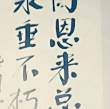 周恩来总
永垂不朽